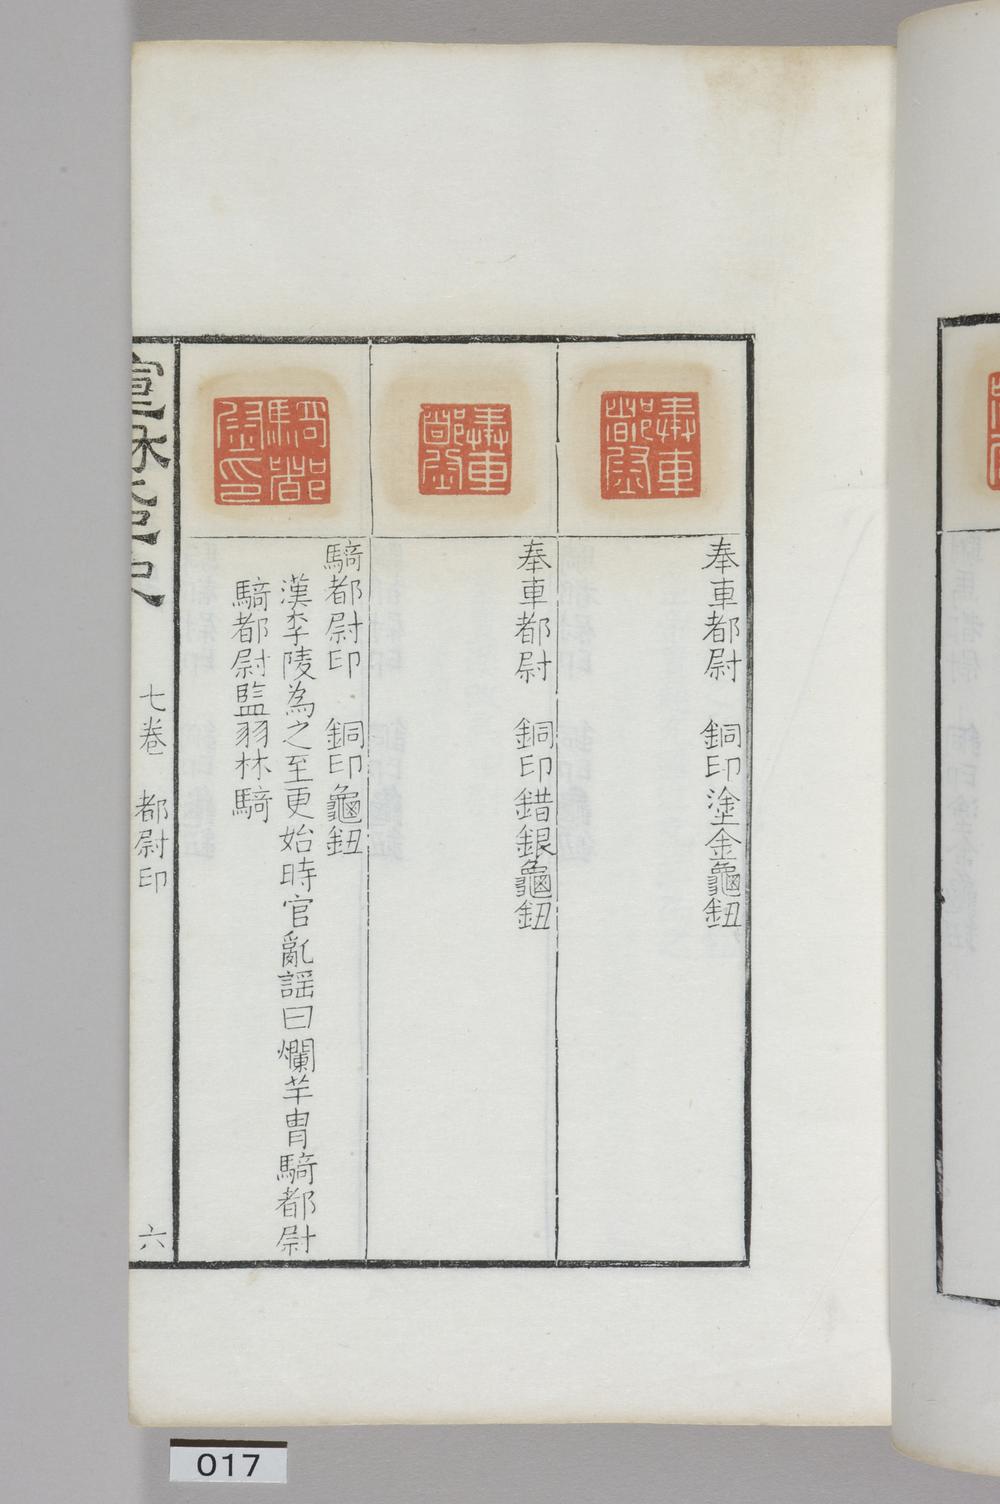 奉車都尉
奉車都尉　銅印塗金龜鈕
奉車都尉
奉車都尉　銅印錯銀龜鈕
騎都尉印
騎都尉印　銅印龜鈕
漢李陵為之至更始時官亂謡曰爛羊胃騎都尉
騎都尉監羽林騎
七卷　都尉印
六
017